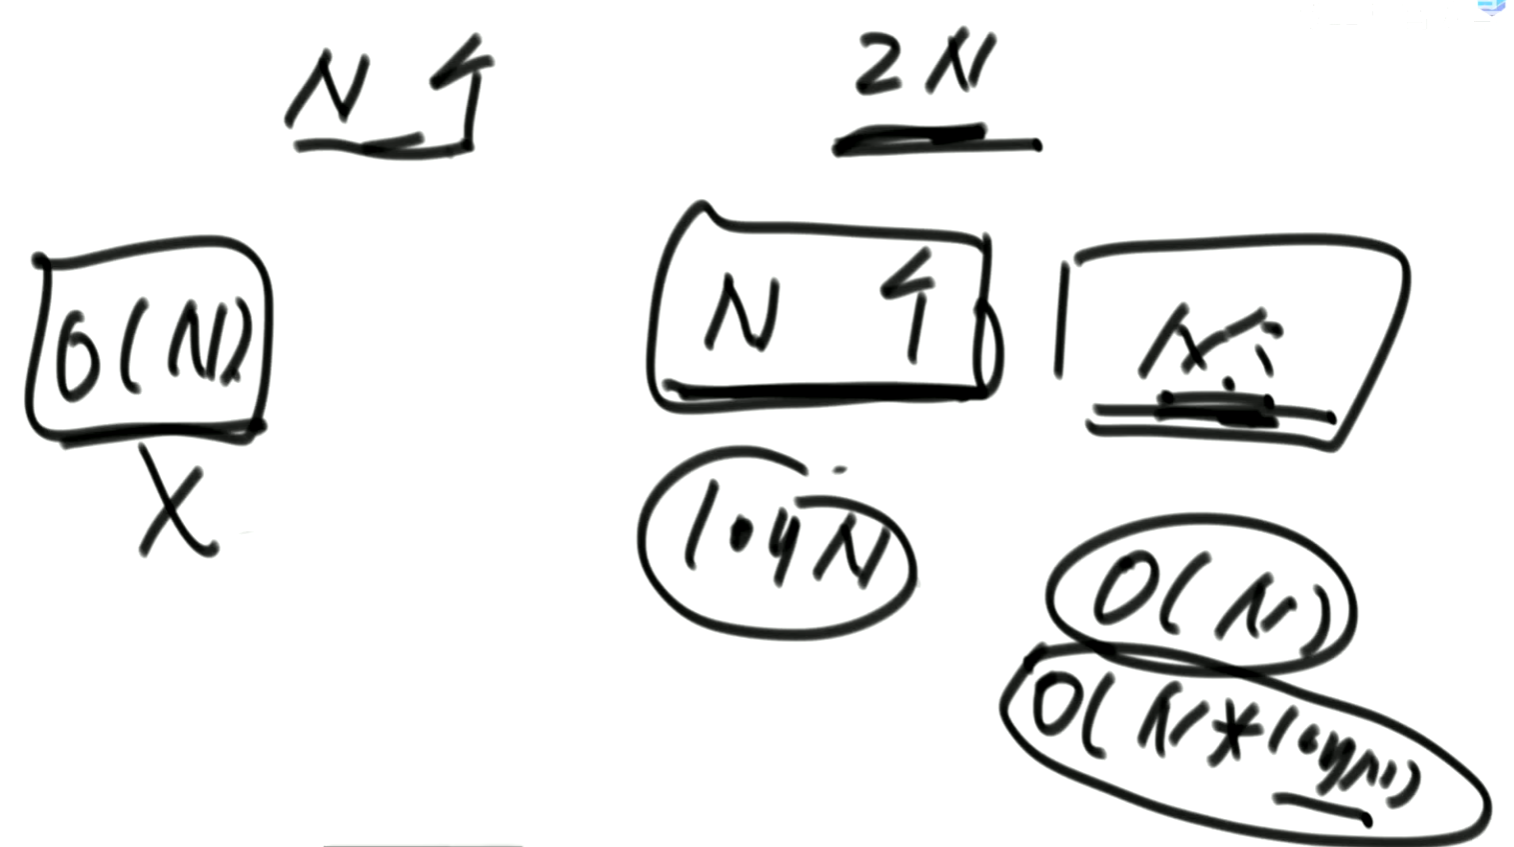 N 个
2N
O(N)
N 个
N个
logN
O(N)
O(N*logN)